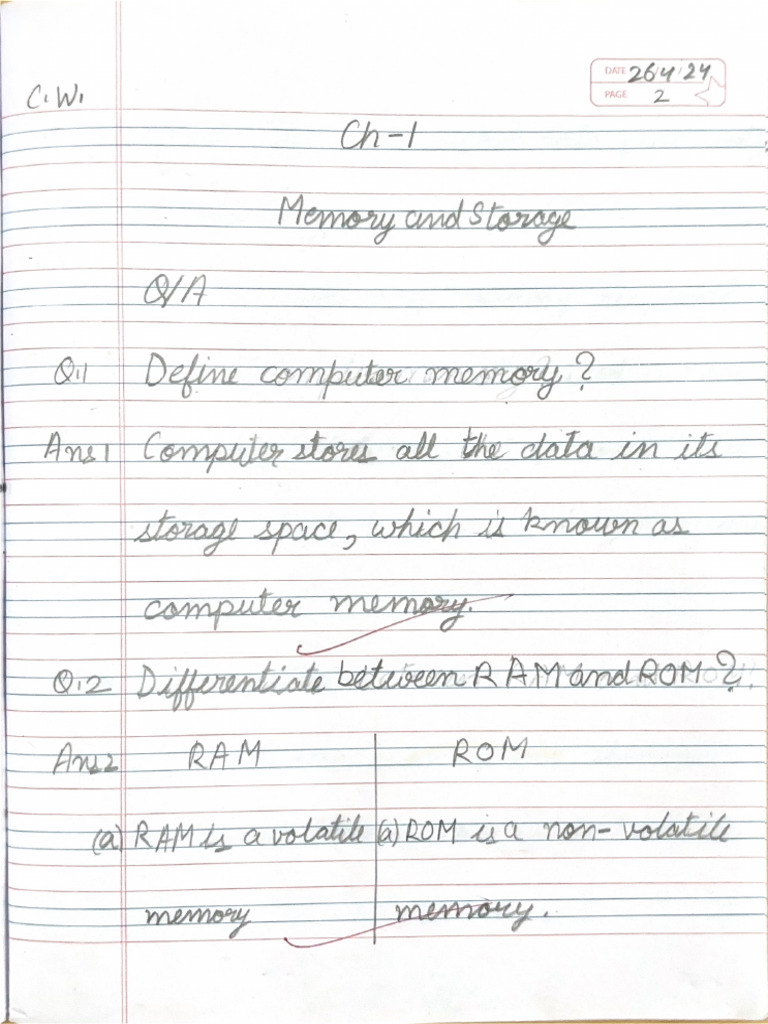 C.W.
DATE 26/4/24
PAGE 2
Ch-1
Memory and Storage
Q/A
Q.1 Define computer memory?
Ans1 Computer stores all the data in its
storage space, which is known as
computer memory.
Q.2 Differentiate between RAM and ROM?
Ans2 RAM ROM
(a) RAM is a volatile (a) ROM is a non-volatile
memory memory.